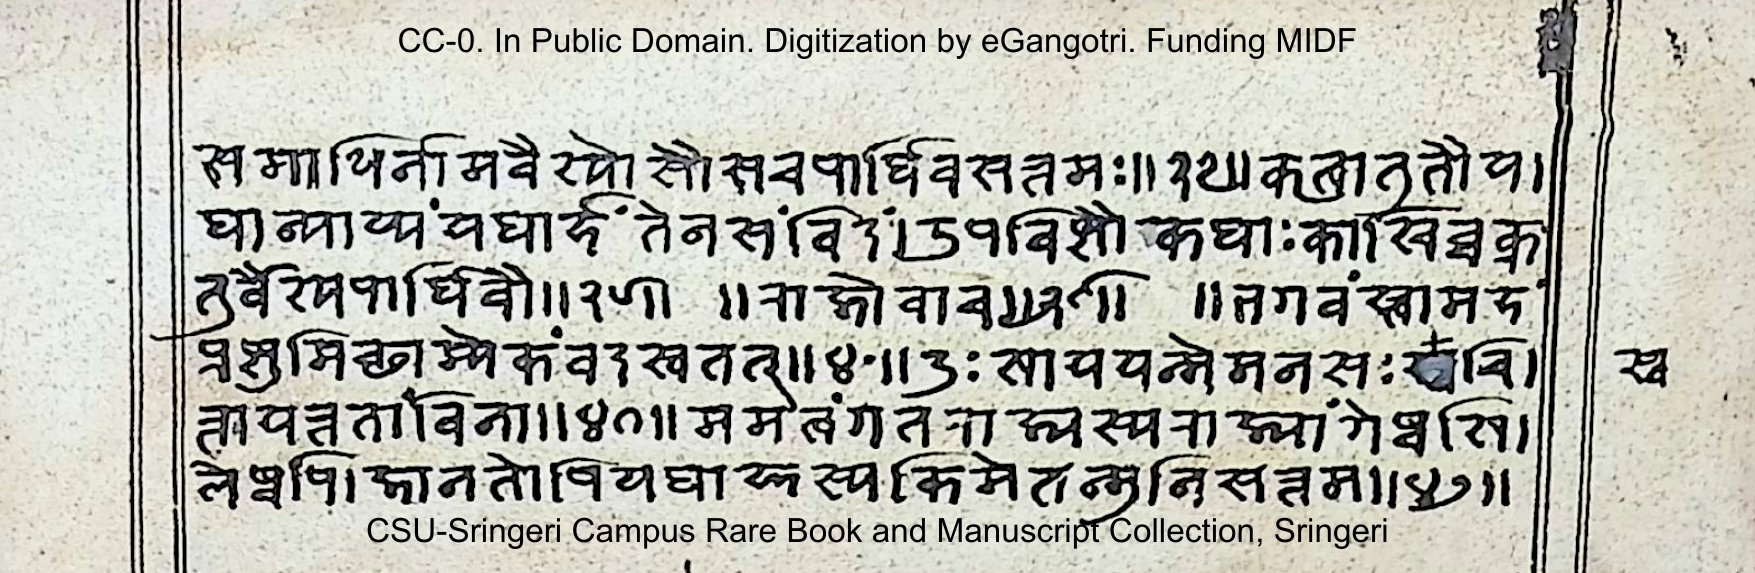 CC-0. In Public Domain. Digitization by eGangotri. Funding MIDF
समाधिर्नामवैश्योसौसचपार्थिवसत्तमः॥३७॥कृत्वातुतौय।
थान्याय्यंयथार्हंतेनसंविदं।उपविष्टौकथाःकाश्चिच्चक्र
तुर्वैश्यपार्थिवौ॥३८॥ ॥राजोवाच॥३९॥ ॥भगवंस्त्वामहं
प्रष्टुमिच्छाम्येकंवदस्वतत्॥४०॥दुःखाययन्मेमनसःस्वचि।
त्तायत्ततांविना॥४१॥ममत्वंगतराज्यस्यराज्यांगेष्वखि।
लेष्वपि।जानतोपियथाज्ञस्यकिमेतन्मुनिसत्तम॥४२॥
स्व
CSU-Sringeri Campus Rare Book and Manuscript Collection, Sringeri